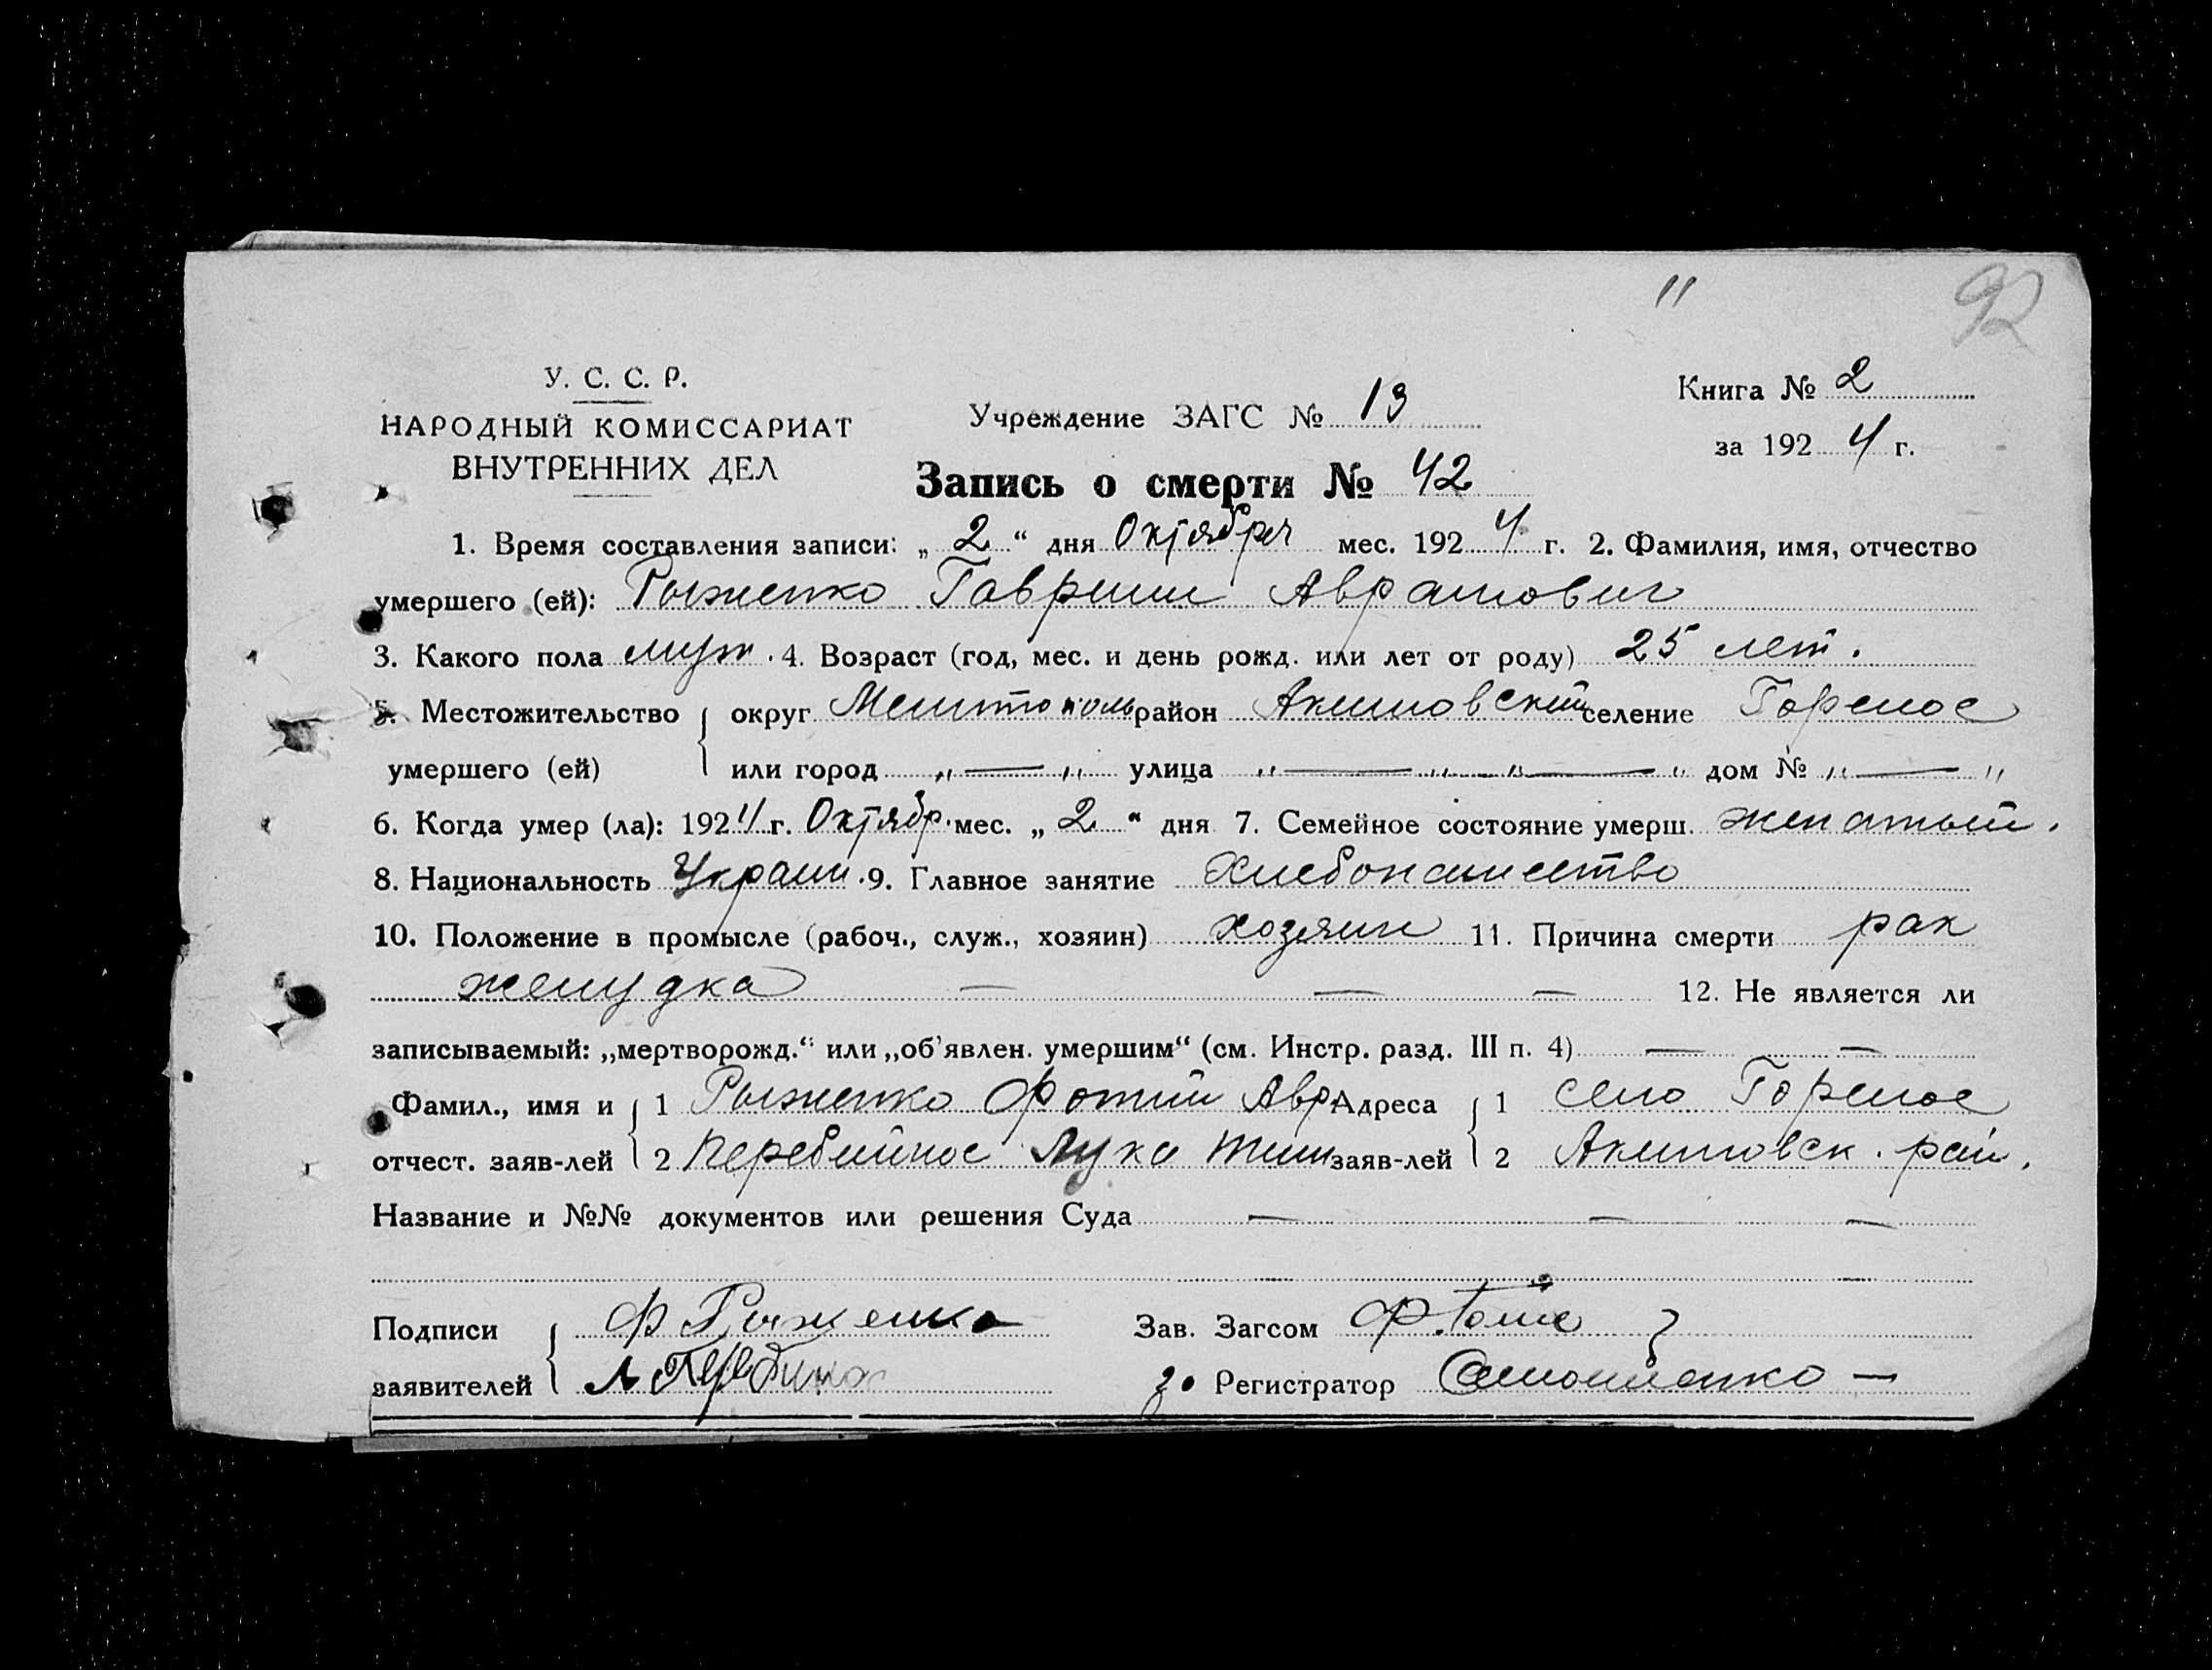 "
92
У. С. С. Р.
НАРОДНЫЙ КОМИССАРИАТ
ВНУТРЕННИХ ДЕЛ
Учреждение ЗАГС № 13
Книга № 2
за 1924 г.
Запись о смерти № 42
1. Время составления записи: „ 2 “ дня Октября мес. 1924 г. 2. Фамилия, имя, отчество
умершего (ей): Рыженко Гавриил Аврамович
3. Какого пола муж. 4. Возраст (год, мес. и день рожд. или лет от роду) 25 лет.
5. Местожительство округ Мелитополь район Акимовский селение Горелое
умершего (ей) или город „ — „ улица „ — „ „ — „ дом № „ — „
6. Когда умер (ла): 1924 г. Октябр. мес. „ 2 “ дня 7. Семейное состояние умерш. женатый.
8. Национальность Украин. 9. Главное занятие Хлебопашество
10. Положение в промысле (рабоч., служ., хозяин) хозяин 11. Причина смерти рак
желудка — — — 12. Не является ли
записываемый: „мертворожд.“ или „об'явлен. умершим“ (см. Инстр. разд. III п. 4) — —
Фамил., имя и 1 Рыженко Фотий Авр. Адреса 1 село Горелое
отчест. заяв-лей 2 Перебийнос Лука Тим заяв-лей 2 Акимовск. рай.
Название и №№ документов или решения Суда — — —
Подписи Ф Рыженко Зав. Загсом
заявителей Л Регистратор